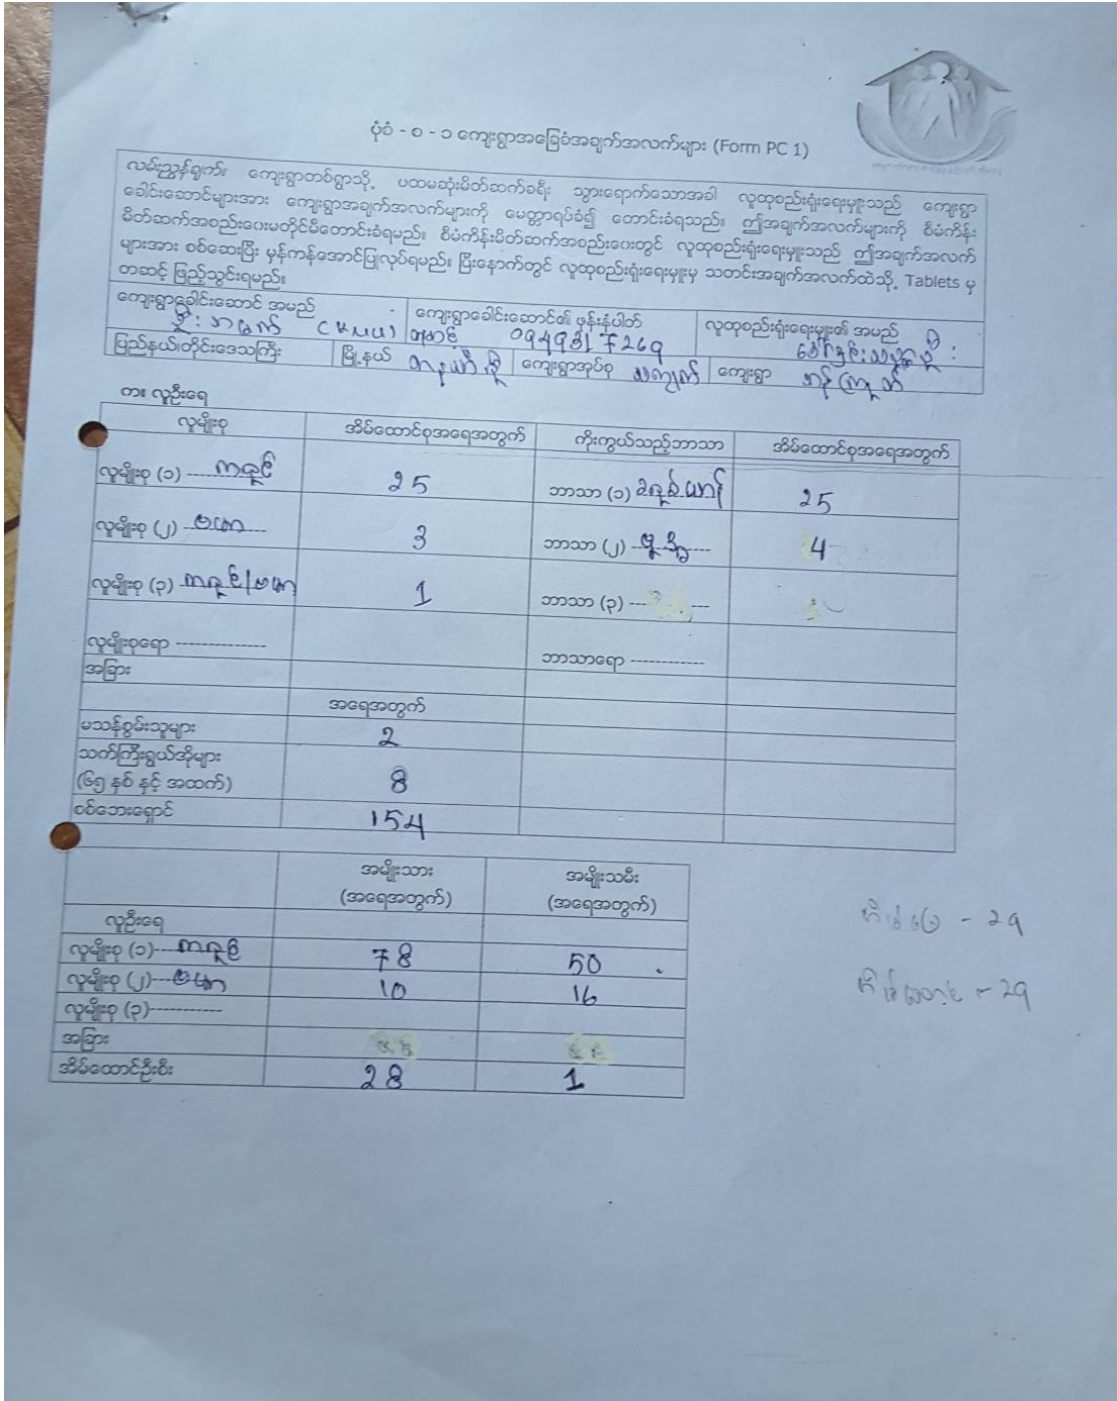 ပုံစံ - စ - ၁ ကျေးရွာအခြေခံအချက်အလက်များ (Form PC 1)
လမ်းညွှန်ချက်။ ကျေးရွာတစ်ရွာသို့ ပထမဆုံးမိတ်ဆက်ခရီး သွားရောက်သောအခါ လူထုစည်းရုံးရေးမှူးသည် ကျေးရွာ
ခေါင်းဆောင်များအား ကျေးရွာအချက်အလက်များကို မေတ္တာရပ်ခံ၍ တောင်းခံရသည်။ ဤအချက်အလက်များကို စီမံကိန်း
မိတ်ဆက်အစည်းဝေးမတိုင်မီတောင်းခံရမည်။ စီမံကိန်းမိတ်ဆက်အစည်းဝေးတွင် လူထုစည်းရုံးရေးမှူးသည် ဤအချက်အလက်
များအား စစ်ဆေးပြီး မှန်ကန်အောင်ပြုလုပ်ရမည်။ ပြီးနောက်တွင် လူထုစည်းရုံးရေးမှူးမှ သတင်းအချက်အလက်ထဲသို့ Tablets မှ
တဆင့် ဖြည့်သွင်းရမည်။
ကျေးရွာခေါင်းဆောင် အမည် ကျေးရွာခေါင်းဆောင်၏ ဖုန်းနံပါတ် လူထုစည်းရုံးရေးမှူး၏ အမည်
ပြည်နယ်၊တိုင်းဒေသကြီး မြို့နယ် ကျေးရွာအုပ်စု ကျေးရွာ
က။ လူဦးရေ
လူမျိုးစု အိမ်ထောင်စုအရေအတွက် ကိုးကွယ်သည့်ဘာသာ အိမ်ထောင်စုအရေအတွက်
လူမျိုးစု (၁) ကရင် 25 ဘာသာ (၁) ခရစ်ယာန် 25
လူမျိုးစု (၂) ဗမာ 3 ဘာသာ (၂) ဗုဒ္ဓ 4
လူမျိုးစု (၃) ကရင်/ဗမာ 1 ဘာသာ (၃)
လူမျိုးစုရော ဘာသာရော
အခြား
အရေအတွက်
မသန်စွမ်းသူများ 2
သက်ကြီးရွယ်အိုများ
(၆၅ နှစ် နှင့် အထက်) 8
စစ်ဘေးရှောင် 154
အမျိုးသား အမျိုးသမီး
(အရေအတွက်) (အရေအတွက်)
လူဦးရေ
လူမျိုးစု (၁) ကရင် 78 50
လူမျိုးစု (၂) ဗမာ 10 16
လူမျိုးစု (၃)
အခြား
အိမ်ထောင်ဦးစီး 28 1
အိမ်ခြေ - 29
အိမ်ထောင်စု - 29